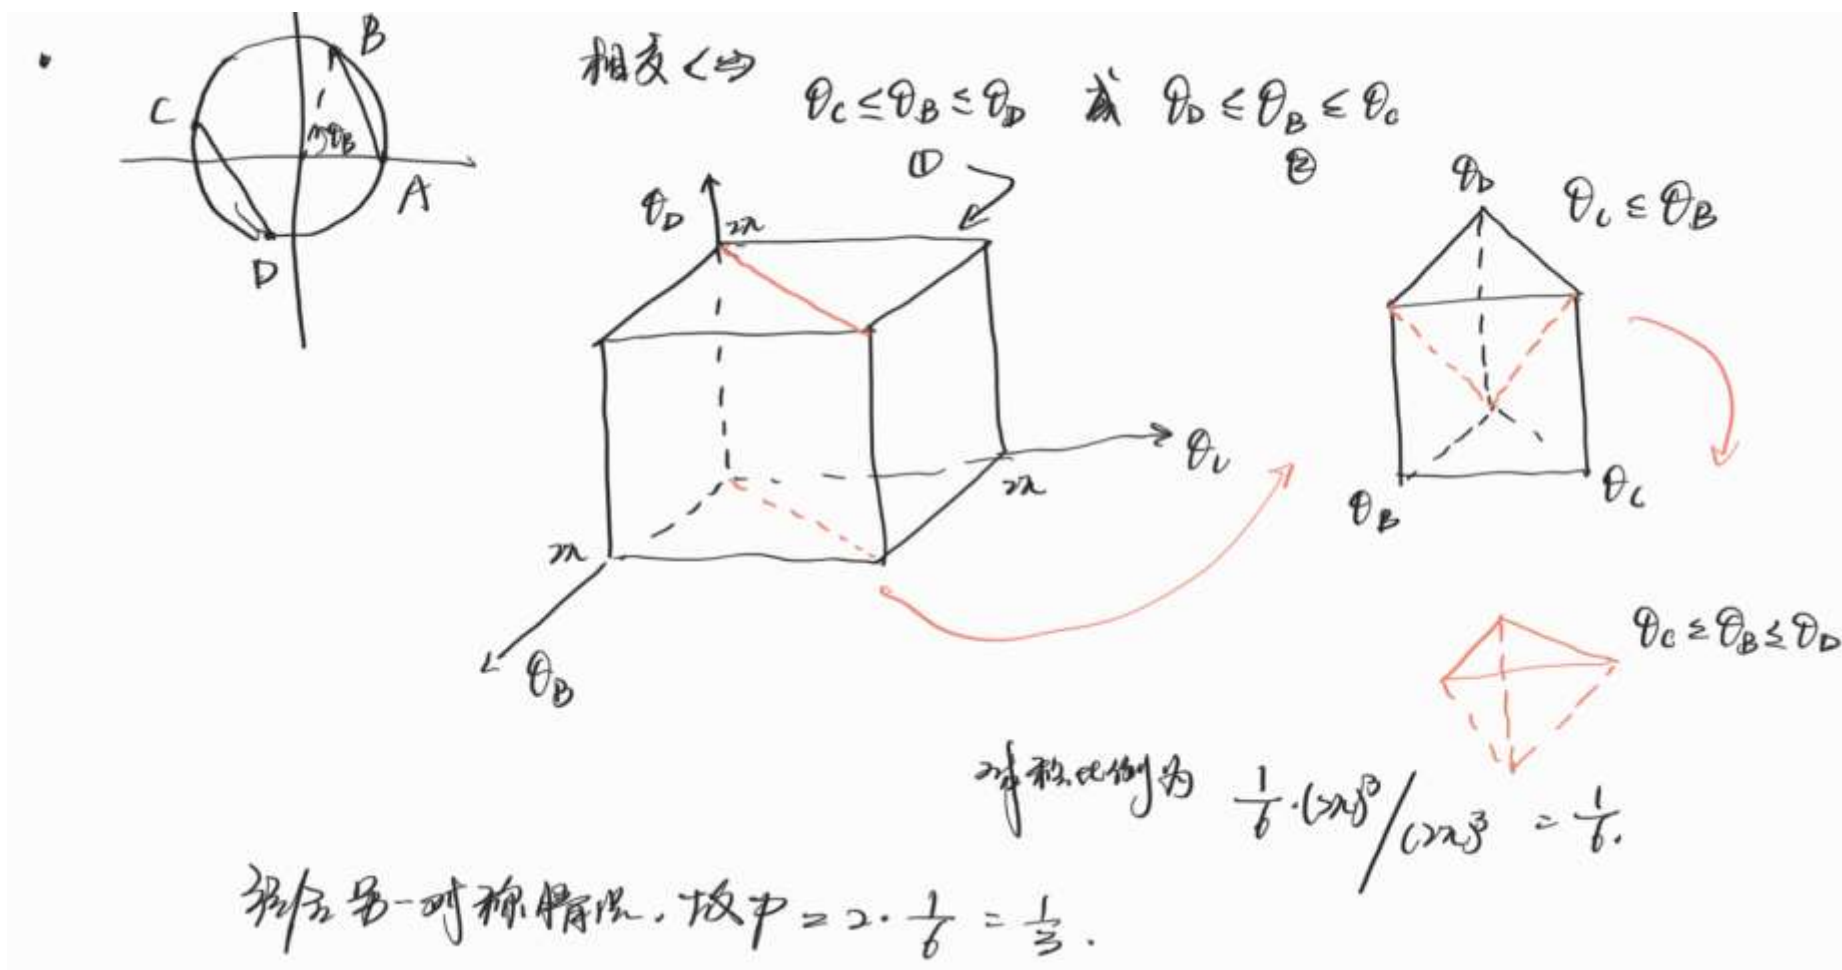 B
C
θB
A
D
相交 <=>
θC ≤ θB ≤ θD 或 θD ≤ θB ≤ θC
① ②
θD
2π
θC
2π
2π
θB
θD
θC ≤ θB
θB
θC
θC ≤ θB ≤ θD
对称比例为 1/6·(2π)³/(2π)³ = 1/6.
结合另一对称情况.故P = 2·1/6 = 1/3.